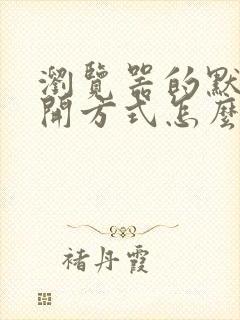 瀏覽器的默
開方式怎麼
褚丹霞